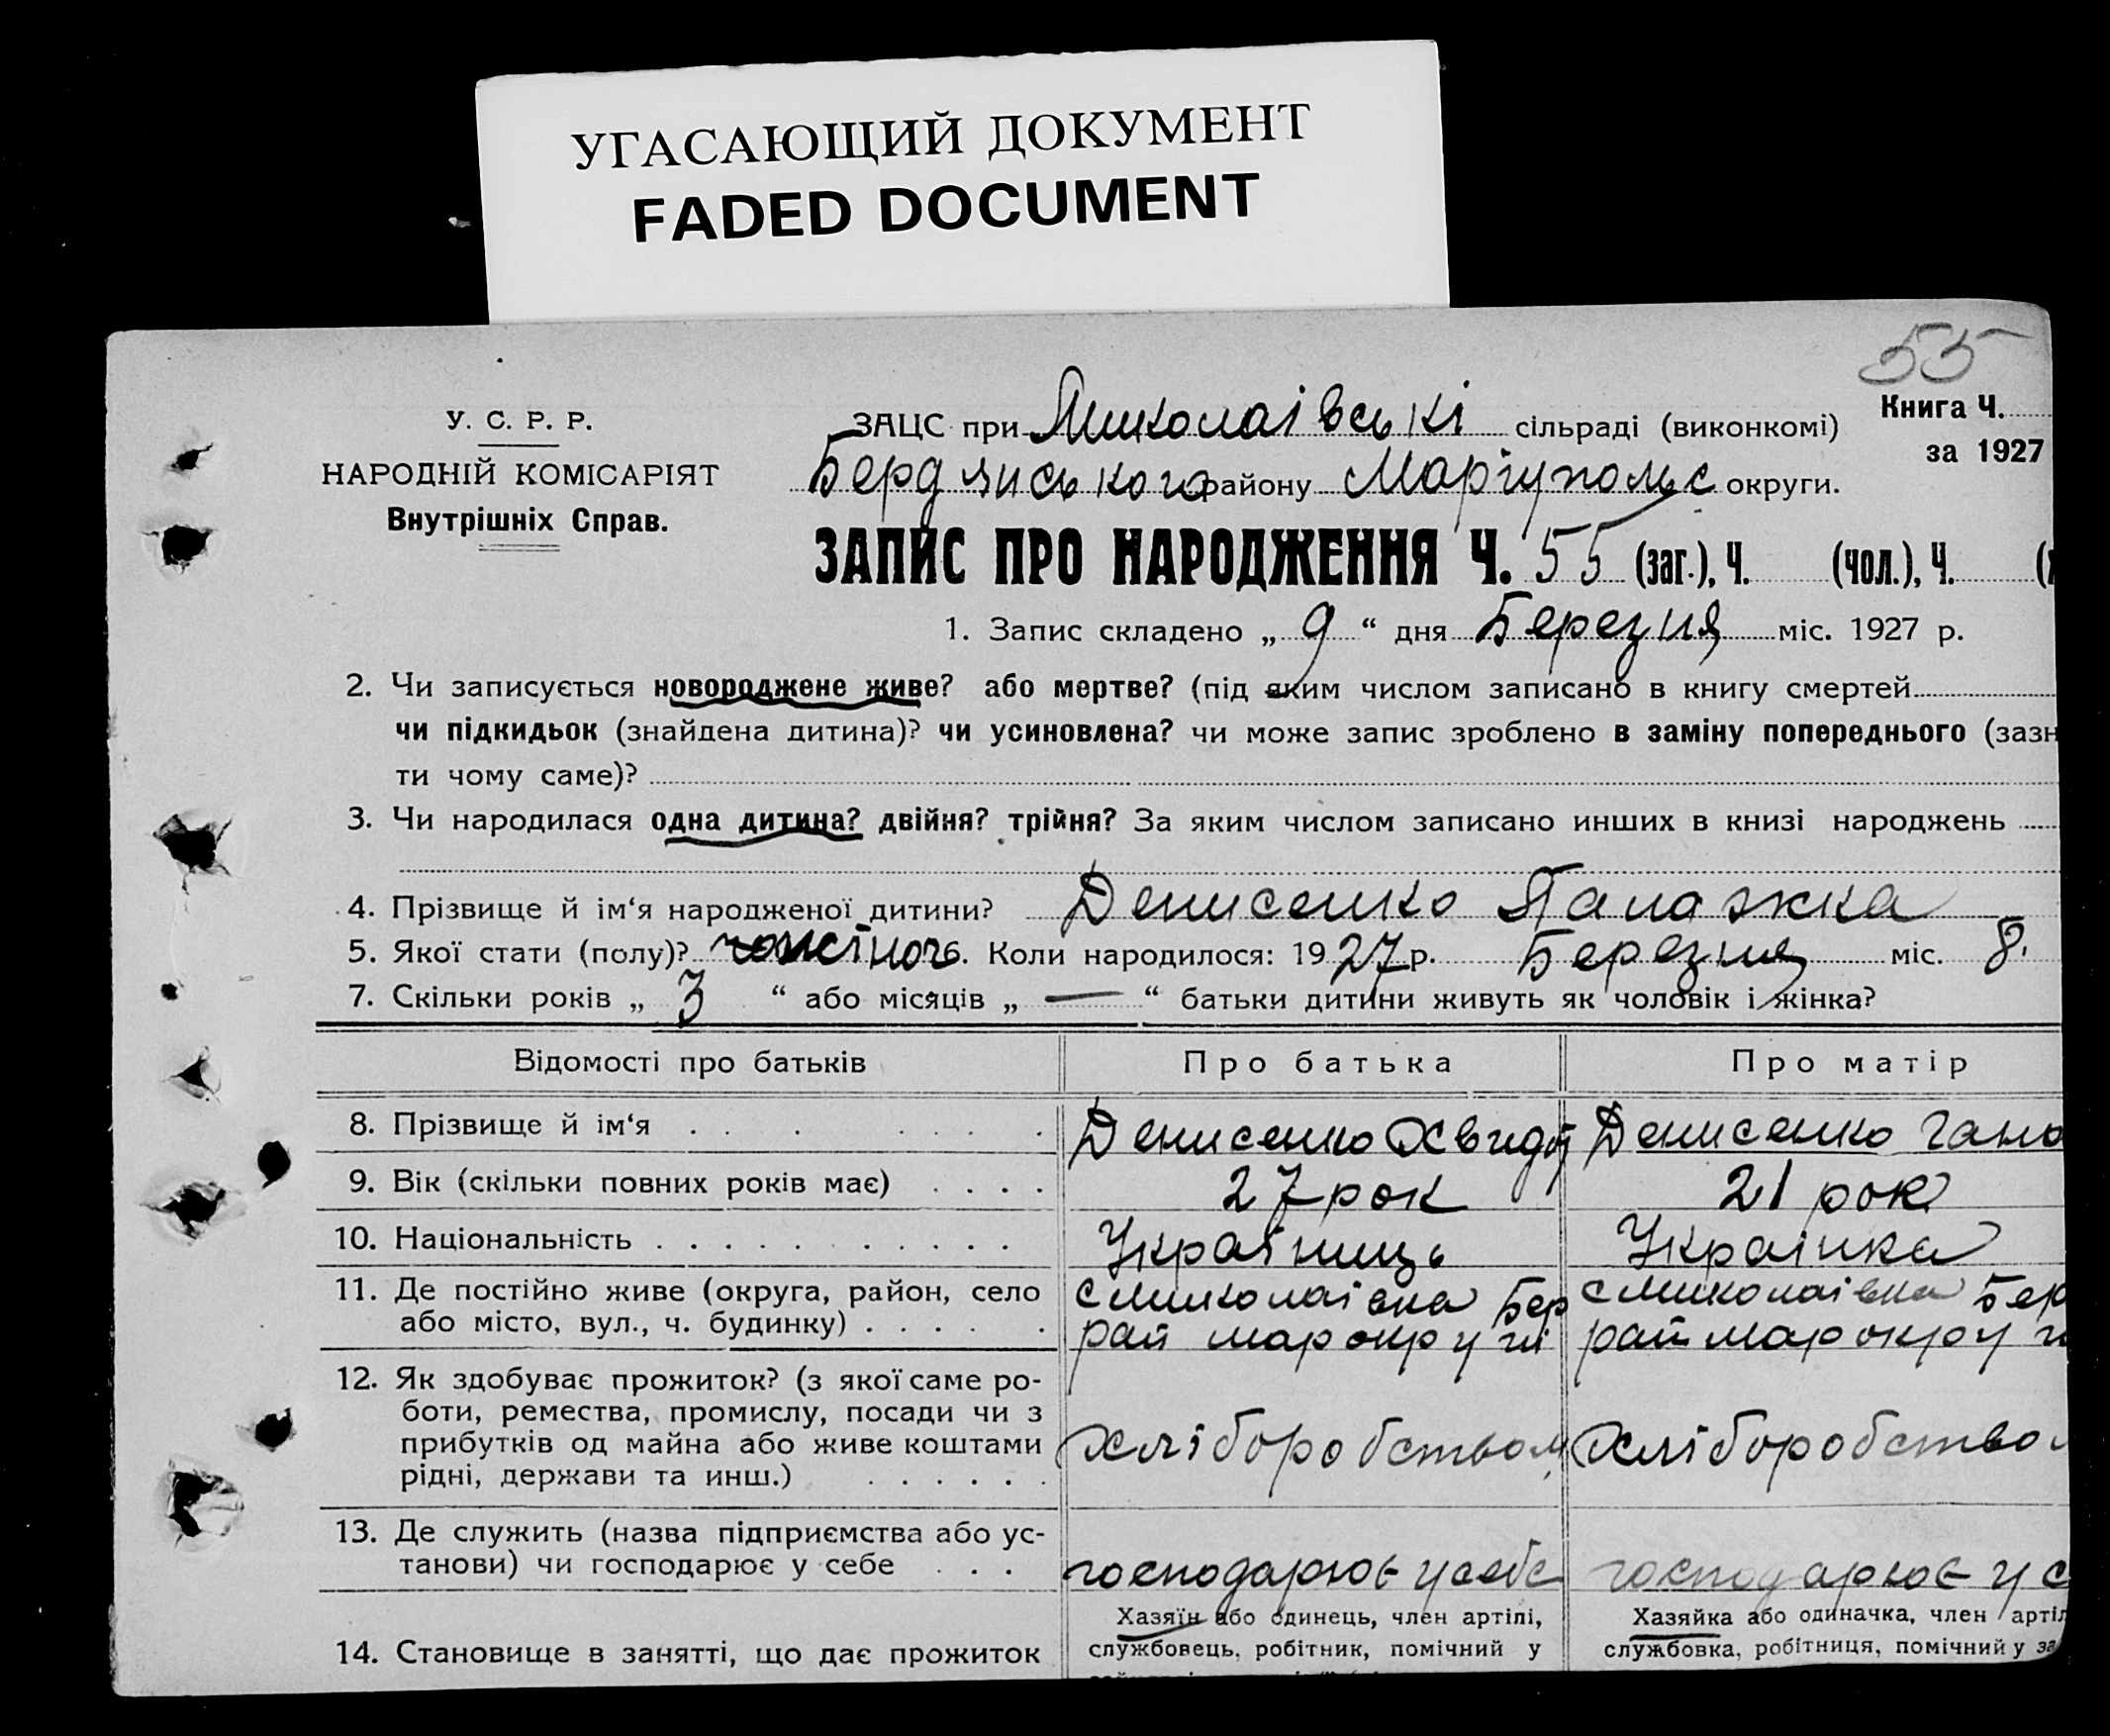 УГАСАЮЩИЙ ДОКУМЕНТ
FADED DOCUMENT
55
У. С. Р. Р.
НАРОДНІЙ КОМІСАРІЯТ
Внутрішніх Справ.
ЗАЦС при Миколаівські сільраді (виконкомі)
Книга Ч.
за 1927
Бердянського району Маріупольс округи.
ЗАПИС ПРО НАРОДЖЕННЯ Ч. 55 (заг.), Ч. (чол.), Ч.
1. Запис складено „ 9 “ дня Березня міс. 1927 р.
2. Чи записується новороджене живе? або мертве? (під яким числом записано в книгу смертей
чи підкидьок (знайдена дитина)? чи усиновлена? чи може запис зроблено в заміну попереднього (зазн
ти чому саме)?
3. Чи народилася одна дитина? двійня? трійня? За яким числом записано инших в книзі народжень
4. Прізвище й ім‘я народженої дитини? Денисенко Палажка
5. Якої стати (полу)? 6. Коли народилося: 1927 р. Березня міс. 8.
7. Скільки років „ 3 “ або місяців „ — “ батьки дитини живуть як чоловік і жінка?
Відомості про батьків Про батька Про матір
8. Прізвище й ім‘я Денисенко Денисенко Гана
9. Вік (скільки повних років має) 27 рок 21 рок
10. Національність Украіниць Украінка
11. Де постійно живе (округа, район, село с Миколаівка Бер с Миколаівка Бер
або місто, вул., ч. будинку) рай мар округи рай мар округи
12. Як здобуває прожиток? (з якої саме ро-
боти, ремества, промислу, посади чи з
прибутків од майна або живе коштами хліборобством хліборобство
рідні, держави та инш.)
13. Де служить (назва підприємства або ус-
танови) чи господарює у себе господарює у себе господарює у с
Хазяїн або одинець, член артілі, Хазяйка або одиначка, член артіл
14. Становище в занятті, що дає прожиток службовець, робітник, помічний у службовка, робітниця, помічний у за